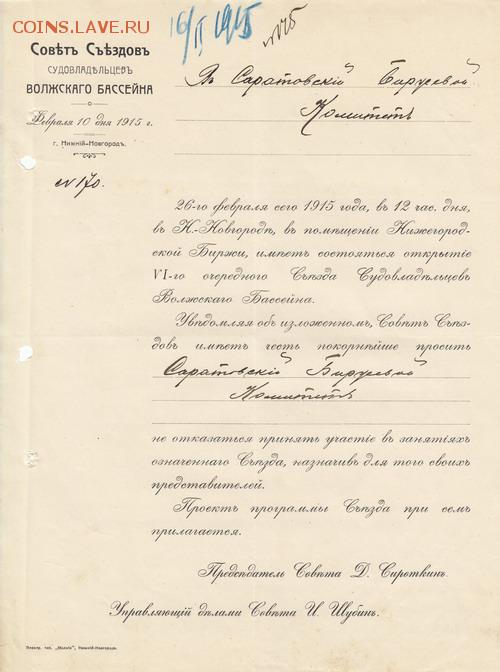 COINS.LAVE.RU
16/II 1915
№ 45
Совѣтъ Съѣздовъ
СУДОВЛАДѢЛЬЦЕВЪ
ВОЛЖСКАГО БАССЕЙНА
Февраля 10 дня 1915 г.
г. Нижній-Новгородъ.
№ 170.
Въ Саратовскій Биржевой
Комитетъ
26-го февраля сего 1915 года, въ 12 час. дня,
въ Н.-Новгородѣ, въ помѣщеніи Нижегород-
ской Биржи, имѣетъ состояться открытіе
VI-го очередного Съѣзда Судовладѣльцевъ
Волжскаго Бассейна.
Увѣдомляя объ изложенномъ, Совѣтъ Съѣз-
довъ имѣетъ честь покорнѣйше просить
Саратовскій Биржевой
Комитетъ
не отказаться принять участіе въ занятіяхъ
означеннаго Съѣзда, назначивъ для того своихъ
представителей.
Проектъ программы Съѣзда при семъ
прилагается.
Предсѣдатель Совѣта Д. Сироткинъ.
Управляющій дѣлами Совѣта И. Шубинъ.
Электр. тип. Нижній-Новгородъ.